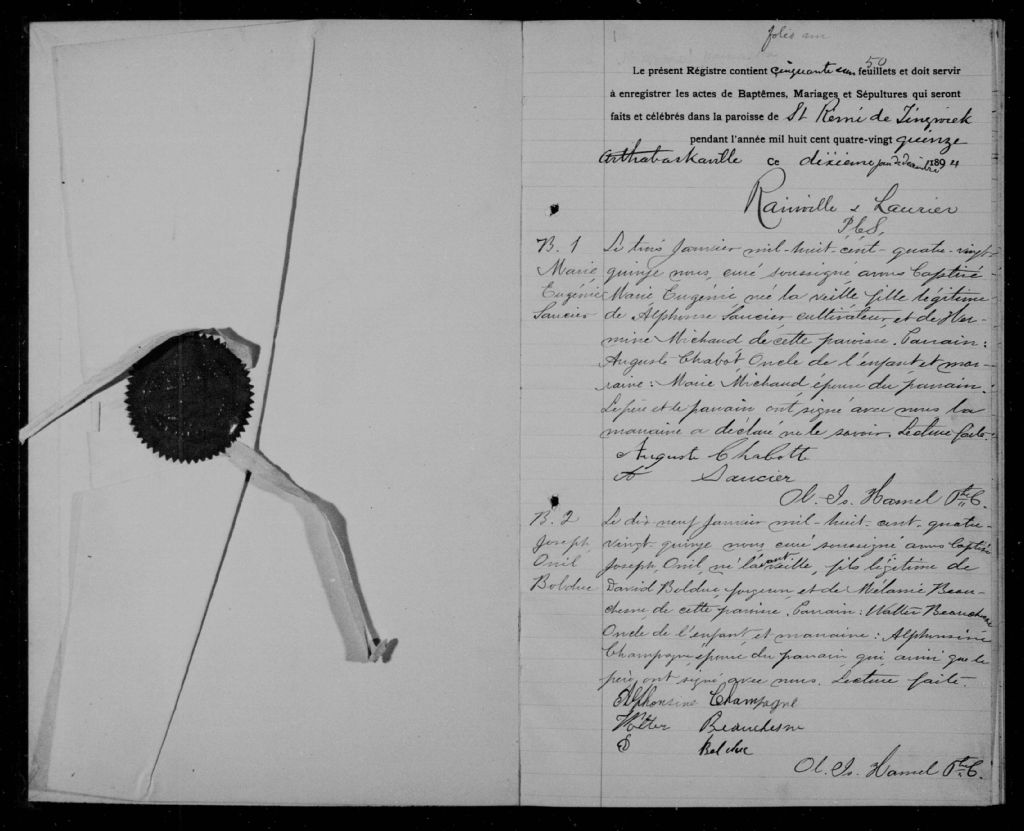 folio un
Le présent Régistre contient cinquante un 50 feuillets et doit servir
à enregistrer les actes de Baptêmes, Mariages et Sépultures qui seront
faits et célébrés dans la paroisse de St Rémi de Tingwick
pendant l'année mil huit cent quatre-vingt quinze
Arthabaskaville Ce dixième jour de décembre 1894
Rainville & Laurier
P.C.S.
B. 1
Marie
Eugénie
Saucier
Le trois Janvier mil-huit-cent-quatre-vingt-
quinze nous, curé soussigné avons baptisé
Marie Eugénie, née la veille fille légitime
de Alphonse Saucier cultivateur, et de Her-
mine Michaud de cette paroisse. Parrain:
Auguste Chabot Oncle de l'enfant et mar-
raine: Marie Michaud épouse du parrain.
Le père et le parrain ont signé avec nous la
marraine a déclaré ne le savoir. Lecture faite.
Auguste Chabott
A Saucier
Ol. Is. Hamel Ptre C.
B. 2
Joseph
Onil
Bolduc
Le dix-neuf Janvier mil-huit-cent-quatre-
vingt-quinze nous, curé soussigné avons baptisé
Joseph, Onil, né l'avant veille, fils légitime de
David Bolduc forgeron et de Mélanie Beau-
chesne de cette paroisse. Parrain: Walter Beauchesne
Oncle de l'enfant et marraine: Alphonsine
Champagne épouse du parrain qui ainsi que le
père ont signé avec nous. Lecture faite.
Alphonsine Champagne
Beauchesne
D Bolduc
Ol. Is. Hamel Ptre C.